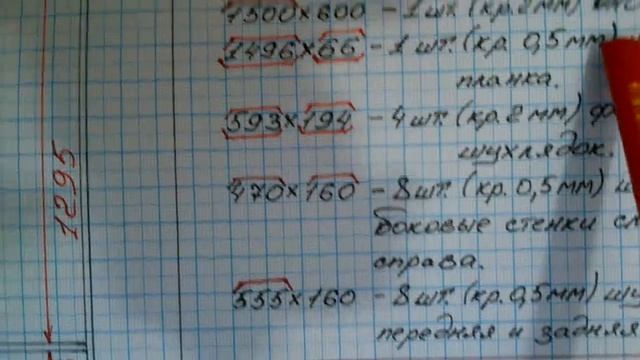 1500×600 – 1 шт. (кр. 2 мм)
1496×66 – 1 шт. (кр. 0,5 мм)
планка.
593×194 – 4 шт. (кр. 2 мм)
шухлядок.
470×160 – 8 шт. (кр. 0,5 мм)
боковые стенки
справа.
555×160 – 8 шт. (кр. 0,5 мм)
передняя и задняя
1295